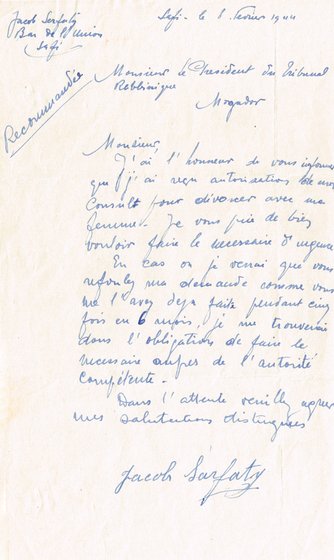 Jacob Serfaty
Bar de l'Union
Safi
Safi - le 8 Février 1944
Recommandée
Monsieur le President du Tribunal
Rabbinique
Mogador
Monsieur,
J'ai l'honneur de vous informer
que j'ai reçu autorisation de mon
Consult pour divorcer avec ma
femme - Je vous prie de bien
vouloir faire le necessaire d'urgence
En cas où je verrai que vous
refoulez ma demande comme vous
me l'avez deja faite pendant cinq
fois en 6 mois, je me trouverai
dans l'obligation de faire le
necessaire aupres de l'autorité
compétente -
Dans l'attente veuillez agréer
mes salutations distinguées
Jacob Sarfaty